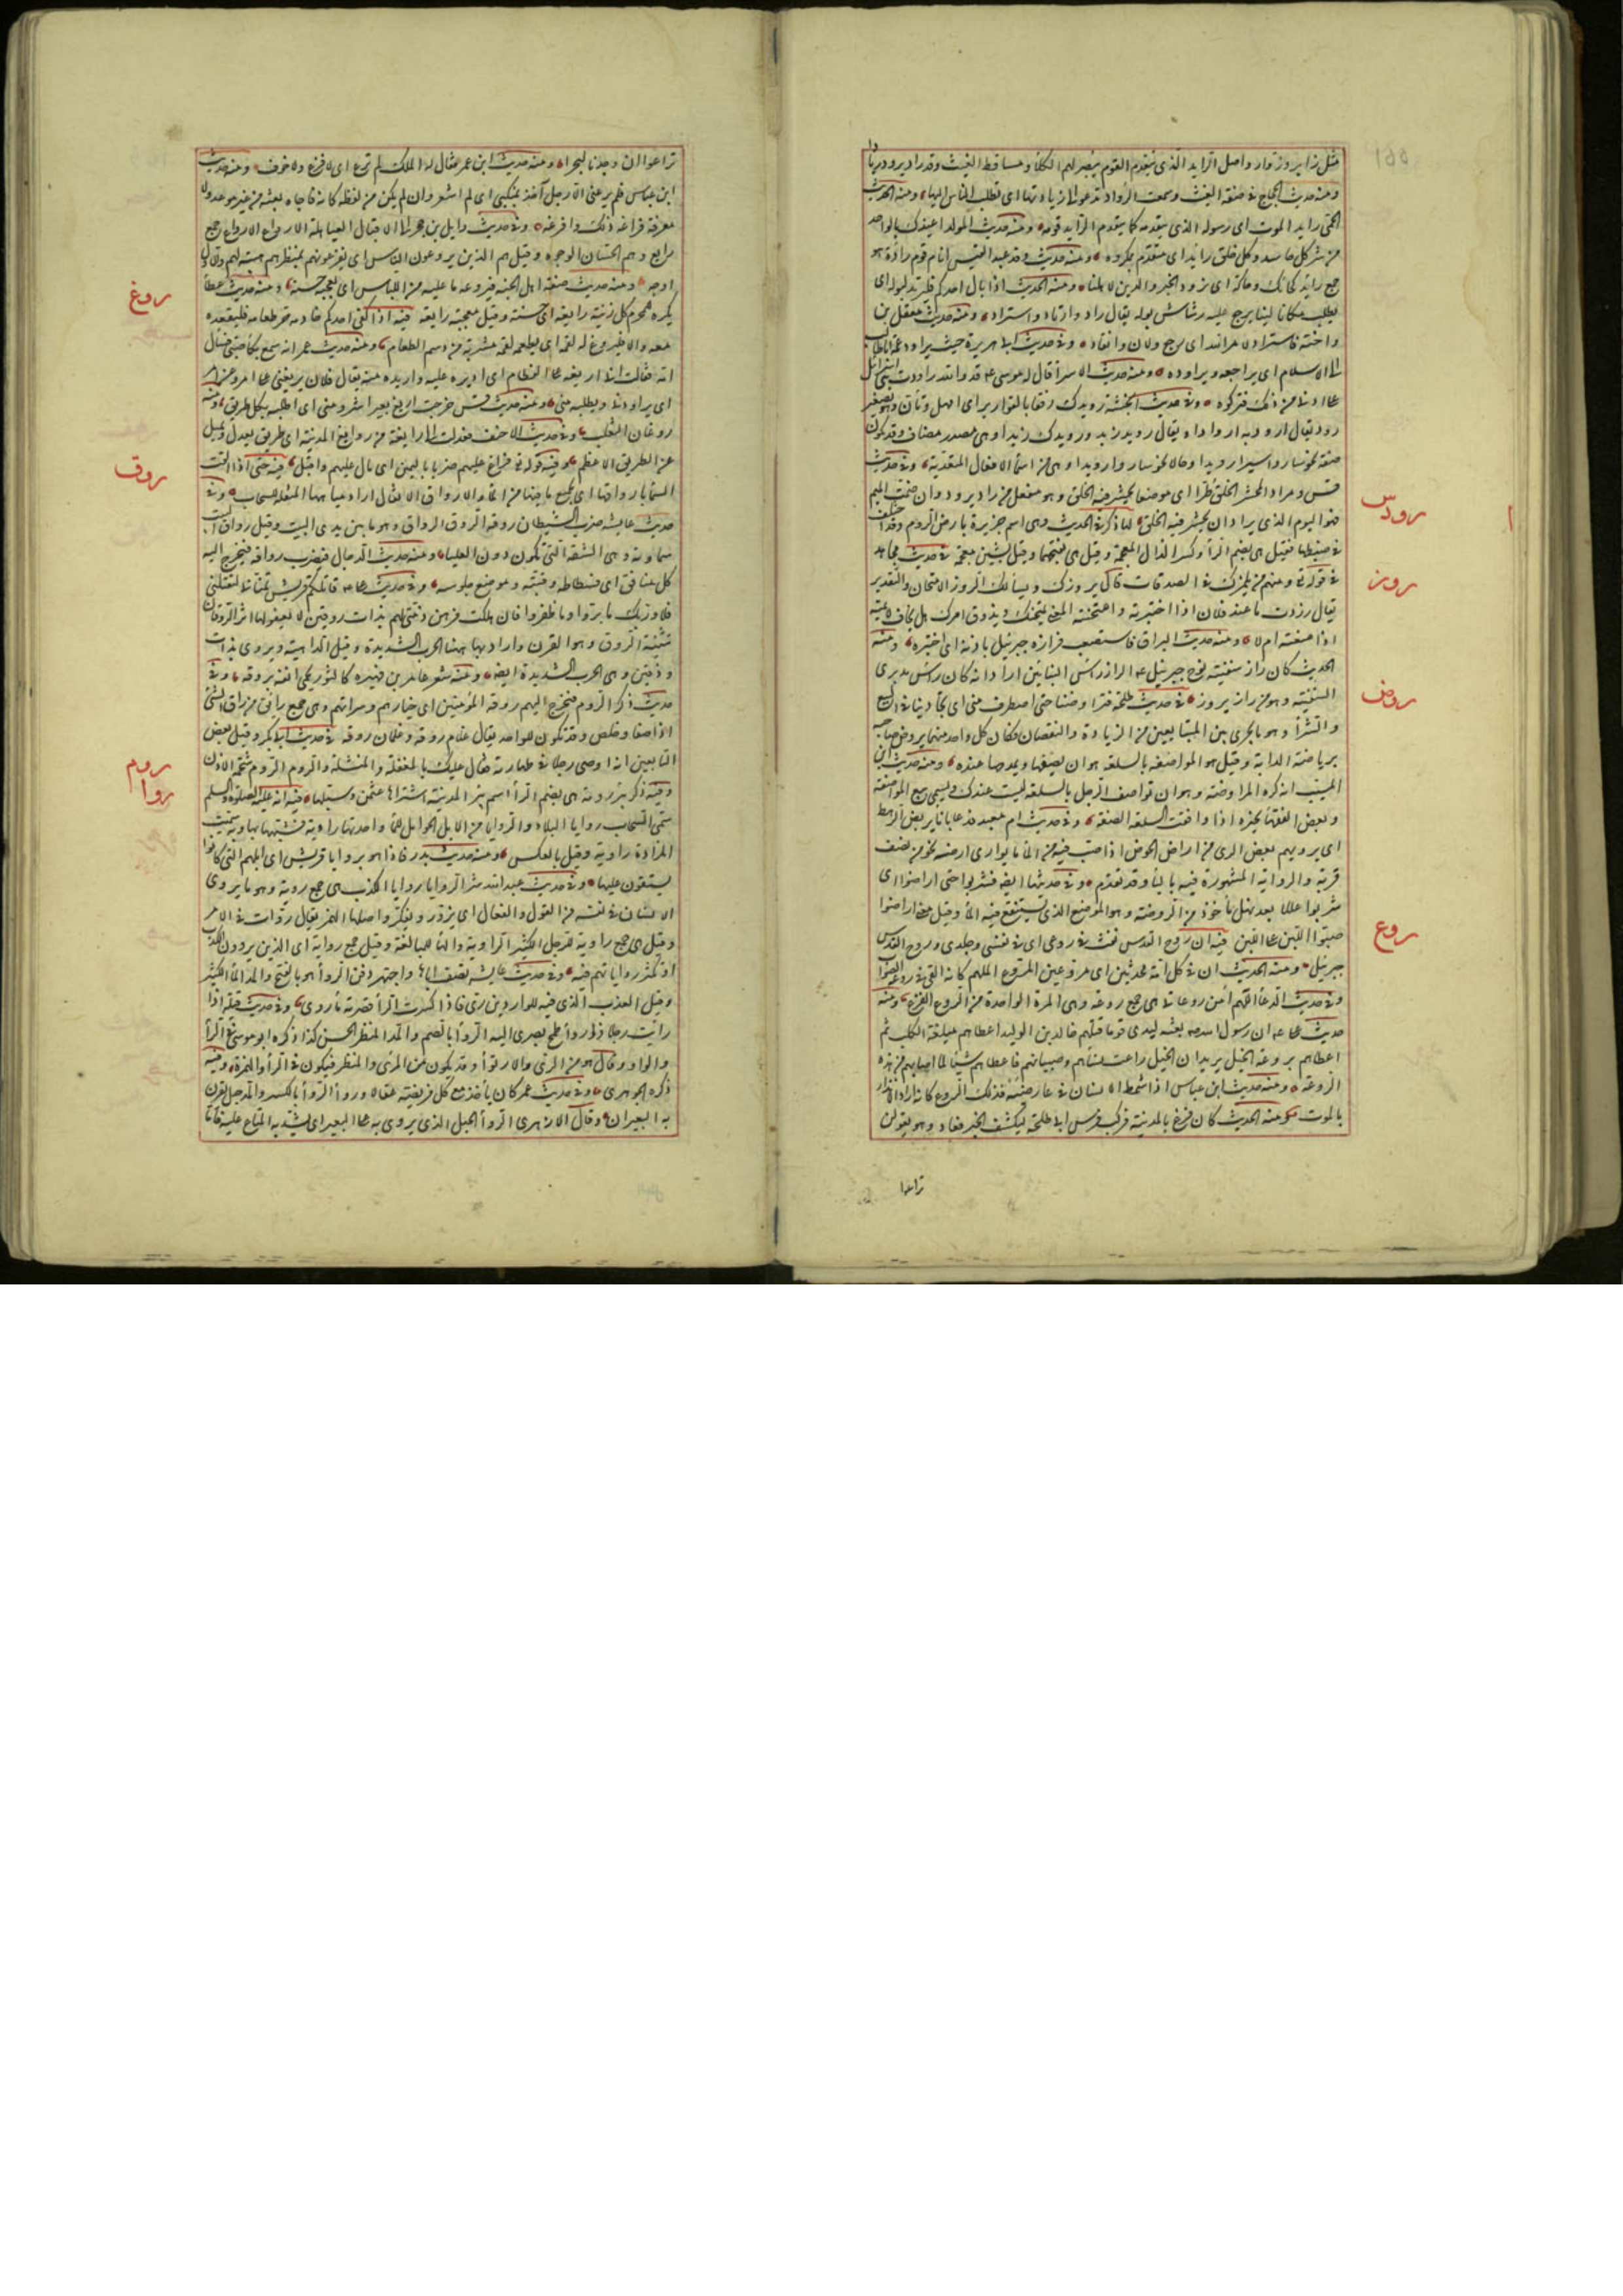 مثل زاير وزوار واصل الرايد الذى يتقدم القوم يبصر لهم الكلأ ومساقط الغيث وقد راد يرود ريادا
ومنه حديث الحجاج فى صفة الغيث وسمعت الرواد تدعو الى ريادتها اى تطلب الناس اليها ومنه الحديث
الحمى رايد الموت اى رسوله الذى يتقدمه كما يتقدم الرايد قومه ومنه حديث المولد اعيذك بالواحد
من شر كل حاسد وكل خلق رائد اى متقدم بمكروه ومنه حديث وفد عبد القيس انا قوم رادة هو
جمع رايد كحائك وحاكة اى نرود الخير والدين لاهلنا ومنه الحديث اذا بال احدكم فليرتد لبوله اى
يطلب مكانا لينا يرجع عليه رشاش بوله يقال راد وارتاد واستراد ومنه حديث معقل بن
واخته فاستراد لامر الله اى رجع ولان وانقاد وفى حديث ابى هريرة حيث يراود عمه ابا طالب
الى الاسلام اى يراجعه ويراوده ومنه حديث الاسرا قال له موسى ع قد والله راودت بنى اسرائيل
على ادنى من ذلك فتركوه وفى حديث انجشة رويدك رفقا بالقوارير اى امهل وتأن وهو تصغير
رود يقال ارود به اروادا ويقال رويد زيد ورويدك زيدا وهى مصدر مضاف وقد تكون
صفة نحو ساروا سيرا رويدا وحالا نحو ساروا رويدا وهى من اسما الافعال المتعدية وفى حديث
قس ومرادا لمحشر الخلق طرا اى موضعا يحشر فيه الخلق وهو مفعل من راد يرود وان ضمت الميم
فهو اليوم الذى يراد ان يحشر فيه الخلق لها ذكر فى الحديث وهى اسم جزيرة بارض الروم وقد اختلف
فى ضبطها فقيل هى بضم الرا وكسر الذال المعجمة وقيل هى بفتحها وقيل بشين معجمة فى حديث مجاهد
فى قوله تع ومنهم من يلمزك فى الصدقات قال يروزك ويسالك الروز الامتحان والتقدير
يقال رزت ما عند فلان اذا اختبرته وامتحنته المعنى يمتحنك ويذوق امرك هل تخاف لائمته
اذا منعته ام لا ومنه حديث البراق فاستصعب فرازه جبرئيل باذنه اى اختبره ومنه
الحديث كان راز سفينة نوح جبرئيل ع الراز رأس البنائين اراد انه كان رأس مدبرى
السفينة وهو من راز يروز فى حديث طلحة فتراوضنا حتى اصطرف منى اى تجاذبنا فى البيع
والشرأ وهو ما يجرى بين المتبايعين من الزيادة والنقصان فكان كل واحد منهما يروض صاحبه
برياضة الدابة وقيل هو المواصفة بالسلعة هو ان يصفها ويمدحها عنده ومنه حديث ابن
المسيب انه كره المراوضة وهو ان تواصف الرجل بالسلعة ليست عندك ويسمى بيع المواصفة
وبعض الفقها يجيزه اذا وافقت السلعة الصفة وفى حديث ام معبد فدعا باناء يربض الرهط
اى يرويهم بعض الرى من اراض الحوض اذا صب فيه من الما ما يوارى ارضه نحو من نصف
قربة والرواية المشهورة فيه بالبا وقد تقدم وفى حديثها ايضا فشربوا حتى اراضوا اى
شربوا عللا بعد نهل ماخوذ من الروضة وهو الموضع الذى يستنقع فيه الما وقيل معنى اراضوا
صبوا اللبن على اللبن فيه ان روح القدس نفث فى روعى اى فى نفسى وخلدى وروح القدس
جبرئيل ومنه الحديث ان فى كل امة محدثين اى مروعين المروع الملهم كانه القى فى روعه الصواب
وفى حديث الدعا اللهم امن روعاتى هى جمع روعة وهى المرة الواحدة من الروع الفزع ومنه
حديث على ع ان رسول الله ص بعثه ليدى قوما قتلهم خالد بن الوليد اعطاهم ميلغة الكلب ثم
اعطاهم بروعة الخيل يريد ان الخيل راعت نساءهم وصبيانهم فاعطاهم شيئا لما اصابهم من هذه
الروعة ومنه حديث ابن عباس اذا شمط الانسان فى عارضيه فذلك الروع كانه اراد الانذار
بالموت ومنه الحديث كان فزع بالمدينة فركب فرس ابى طلحة ليكشف الخبر فعاد وهو يقول لن
تراعوا
رودس
روز
روض
روع
تراعوا ان وجدناه لبحرا ومنه حديث ابن عمر فقال له الملك لم ترع اى لا فزع ولا خوف ومنه حديث
ابن عباس فلم يرعنى الا رجل آخذ بمنكبى اى لم اشعر وان لم يكن من لفظه كانه فاجاه بغتة من غير موعد ولا
معرفة فراعه ذلك وافزعه وفى حديث وايل بن حجر الى الاقيال العباهلة الارواع الارواع جمع
رايع وهم الحسان الوجوه وقيل هم الذين يروعون الناس اى يفزعونهم بمنظرهم هيبة لهم والاول
اوجه ومنه حديث صفة اهل الجنة فيروعه ما عليه من اللباس اى يعجبه حسنه ومنه حديث عطأ
يكره للمحرم كل زينة رايعة اى حسنة وقيل معجبة رايعة فيه اذا كفى احدكم خادمه حر طعامه فليقعده
معه والا فليروغ له لقمة اى يطعمه لقمة مشربة من دسم الطعام ومنه حديث عمر انه سمع بكأ صبى فسال
امه فقالت انى اريغه على الفطام اى اديره عليه واريده منه يقال فلان يريغنى على امر وعن امر
اى يراودنى ويطلبه منى ومنه حديث قس خرجت اريغ بعيرا شرد منى اى اطلبه بكل طريق ومنه
روغان الثعلب وفى حديث الاحنف فعدلت الى رايغة من روايغ المدينة اى طريق يعدل ويميل
عن الطريق الاعظم وفيه قوله تع فراغ عليهم ضربا باليمين اى مال عليهم واقبل فيه حتى اذا القت
السما بارواقها اى بجميع ما فيها من الما والارواق الاثقال اراد مياهها المثقلة للسحاب وفى
حديث عايشة ضرب الشيطان روقه الروق الرواق وهو ما بين يدى البيت وقيل رواق البيت
سماوته وهى الشقة التى تكون دون العليا ومنه حديث الدجال فيضرب رواقه فيخرج اليه
كل منافق اى فسطاطه وقبته وموضع جلوسه وفى حديث على ع تلكم قريش تمنانى لتقتلنى
فلا وربك ما بروا وما ظفروا فان هلكت فرهن ذمتى لهم بذات روقين لا يعفو لها اثر الروقان
تثنية الروق وهو القرن واراد بها ههنا الحرب الشديدة وقيل الداهية ويروى بذات
ودقين وهى الحرب الشديدة ايضا ومنه شعر عامر بن فهيرة كالثور يحمى انفه بروقه وفى
حديث ذكر الروم فيخرج اليهم روقة المؤمنين اى خيارهم وسراتهم وهى جمع رايق من راق الشئ
اذا صفا وخلص وقد تكون للواحد يقال غلام روقة وغلمان روقة فى حديث ابى بكر وقيل بعض
التابعين انه اوصى رجلا فى طهارته فقال عليك بالمغفلة والمنشلة والروم الروم شحمة الاذن
وفيه ذكر بئر رومة هى بضم الرا اسم بئر المدينة اشتراها عثمن وسبلها فيه انه عليه الصلوة والسلم
سمى السحاب روايا البلاد والروايا من الابل الحوامل للما واحدتها راوية فشبهها بها وبه سميت
المزادة راوية وقيل بالعكس ومنه حديث بدر فاذا هو بروايا قريش اى ابلهم التى كانوا
يستقون عليها وفى حديث عبد الله شر الروايا روايا الكذب هى جمع روية وهو ما يروى
الانسان فى نفسه من القول والفعل اى يزور ويفكر واصلها الهمز يقال روات فى الامر
وقيل هى جمع راوية للرجل الكثير الراوية والها للمبالغة وقيل جمع رواية اى الذين يروون الكذب
او تكثر رواياتهم فيه وفى حديث عايشة تصف اباها واجتهر دفن الروأ هو بالفتح والمد الما الكثير
وقيل العذب الذى فيه للواردين رى فاذا كسرت الرا قصرته ما روى وفى حديث قيلة اذا
رايت رجلا ذا روأ طمح بصرى اليه الروأ بالضم والمد المنظر الحسن كذا ذكره ابو موسى فى الرأ
والواو وقال هو من الرى والارتوأ وقد يكون من المرئى والمنظر فيكون فى الرأ والهمزة وفيه
ذكره الجوهرى وفى حديث عمر كان ياخذ مع كل فريضة عقالا وروأ الروأ بالكسر والمد حبل يقرن
به البعيران وقال الازهرى الروأ الحبل الذى يروى به على البعير اى يشد به المتاع عليه فاما
روغ
روق
روم
روا